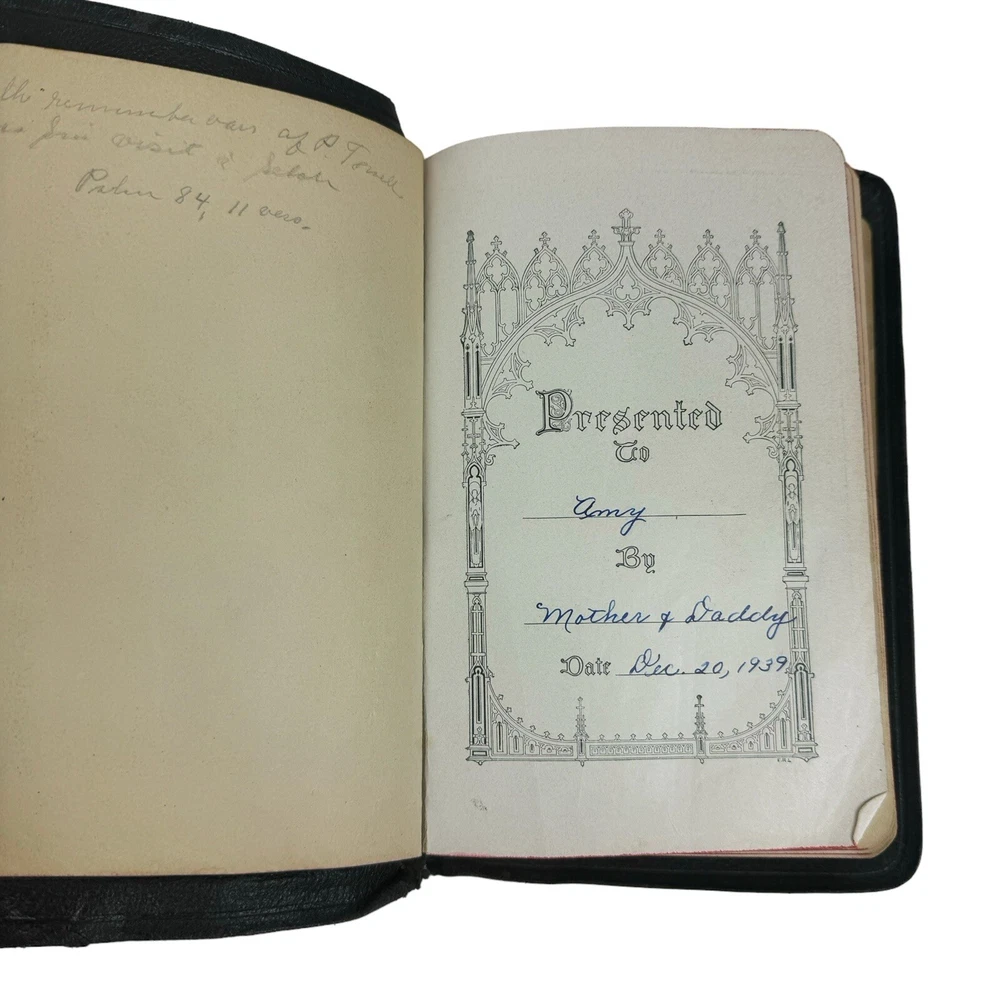 remembrance of P.
visit
Psalm 84, 11 vers.
Presented
To
Amy
By
Mother & Daddy
Date Dec. 20, 1939